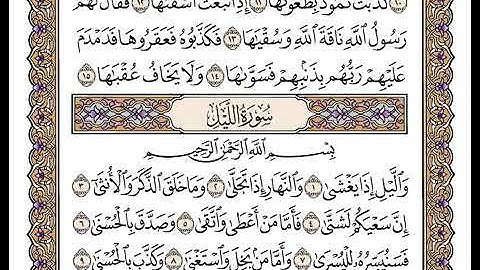 كَذَّبَتْ ثَمُودُ بِطَغْوَىٰهَا ١١ إِذِ ٱنۢبَعَثَ أَشْقَىٰهَا ١٢ فَقَالَ لَهُمْ
رَسُولُ ٱللَّهِ نَاقَةَ ٱللَّهِ وَسُقْيَـٰهَا ١٣ فَكَذَّبُوهُ فَعَقَرُوهَا فَدَمْدَمَ
عَلَيْهِمْ رَبُّهُم بِذَنۢبِهِمْ فَسَوَّىٰهَا ١٤ وَلَا يَخَافُ عُقْبَـٰهَا ١٥
سُورَةُ ٱللَّيْلِ
بِسْمِ ٱللَّهِ ٱلرَّحْمَـٰنِ ٱلرَّحِيمِ
وَٱلَّيْلِ إِذَا يَغْشَىٰ ١ وَٱلنَّهَارِ إِذَا تَجَلَّىٰ ٢ وَمَا خَلَقَ ٱلذَّكَرَ وَٱلْأُنثَىٰٓ ٣
إِنَّ سَعْيَكُمْ لَشَتَّىٰ ٤ فَأَمَّا مَنْ أَعْطَىٰ وَٱتَّقَىٰ ٥ وَصَدَّقَ بِٱلْحُسْنَىٰ ٦
فَسَنُيَسِّرُهُۥ لِلْيُسْرَىٰ ٧ وَأَمَّا مَنۢ بَخِلَ وَٱسْتَغْنَىٰ ٨ وَكَذَّبَ بِٱلْحُسْنَىٰ ٩